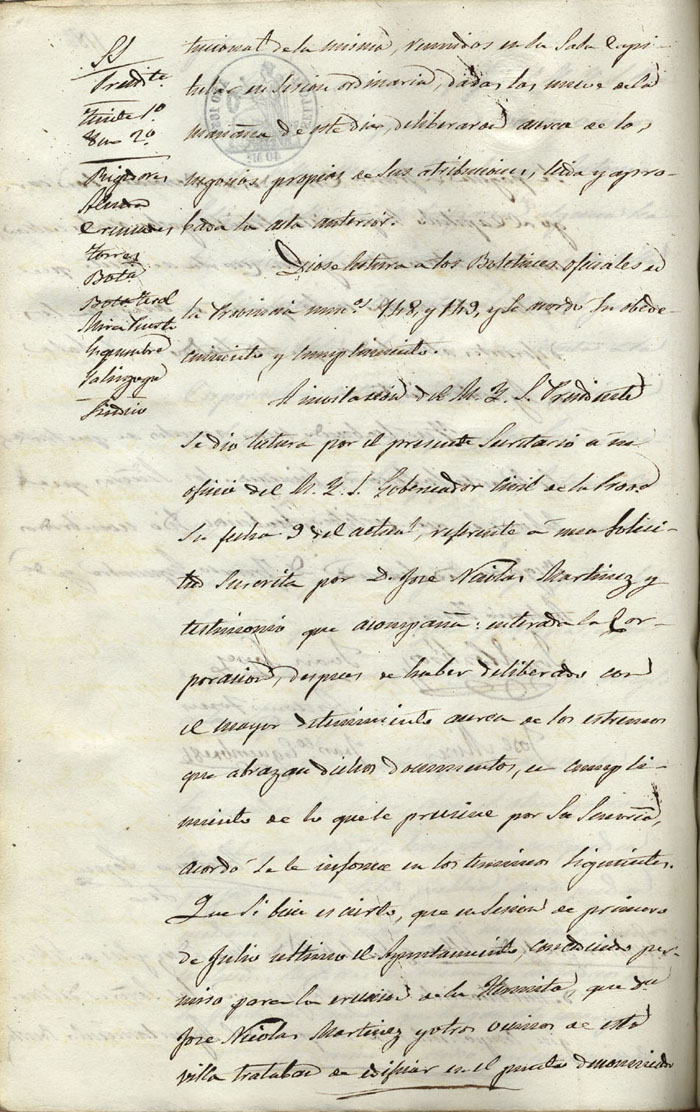 SS
Presidte
Tente 1º
Ydem 2º
Regidores
Torres
Bota
Mira Fuste
Yzquierdo
Síndico
tucional de la misma, reunidos en la Sala Capi-
tular en sesion ordinaria, dadas las nueve de la
mañana de este dia, deliberaron acerca de los
negocios propios de sus atribuciones, leida y apro-
bada la acta anterior.
Diose lectura a los Boletines oficiales de
la Provincia numos 148, y 149, y se acordó su obede-
cimiento y cumplimiento.
A invitacion del M. Y. S. Presidente
se dio lectura por el presente Secretario á un
oficio del M. Y. S. Gobernador Civil de la Prova
su fecha 9 del actual, referente a una solici-
tud suscrita por D. José Nicolas Martinez y
testimonio que acompaña: enterada la Cor-
poracion, despues de haber deliberado con
el mayor detenimiento acerca de los estremos
que abrazan dichos documentos, en cumpli-
miento de lo que se previene por Su Señoria,
acordó se le informe en los terminos siguientes.
Que si bien es cierto, que en sesion de primero
de Julio ultimo el Ayuntamiento, concedió per-
miso para la ereccion de la Hermita, que Dn
José Nicolas Martinez y otros vecinos de esta
villa trataban de edificar en el punto denominado